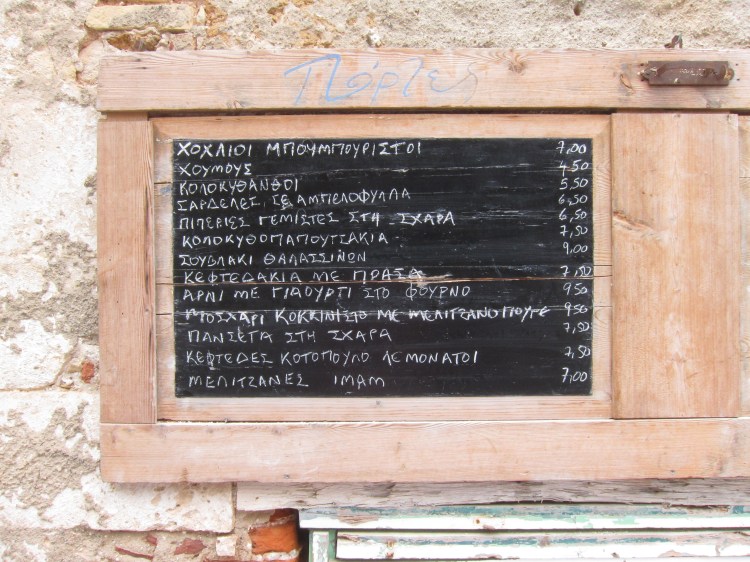 Πόρτες
ΧΟΧΛΙΟΙ ΜΠΟΥΜΠΟΥΡΙΣΤΟΙ 7,00
ΧΟΥΜΟΥΣ 4,50
ΚΟΛΟΚΥΘΑΝΘΟΙ 5,50
ΣΑΡΔΕΛΕΣ ΣΕ ΑΜΠΕΛΟΦΥΛΛΑ 6,50
ΠΙΠΕΡΙΕΣ ΓΕΜΙΣΤΕΣ ΣΤΗ ΣΧΑΡΑ 6,50
ΚΟΛΟΚΥΘΟΠΑΠΟΥΤΣΑΚΙΑ 7,50
ΣΟΥΒΛΑΚΙ ΘΑΛΑΣΣΙΝΩΝ 9,00
ΚΕΦΤΕΔΑΚΙΑ ΜΕ ΠΡΑΣΑ 7,50
ΑΡΝΙ ΜΕ ΓΙΑΟΥΡΤΙ ΣΤΟ ΦΟΥΡΝΟ 9,50
ΜΟΣΧΑΡΙ ΚΟΚΚΙΝΙΣΤΟ ΜΕ ΜΕΛΙΤΖΑΝΟΠΟΥΡΕ 9,50
ΠΑΝΣΕΤΑ ΣΤΗ ΣΧΑΡΑ 7,50
ΚΕΦΤΕΔΕΣ ΚΟΤΟΠΟΥΛΟ ΛΕΜΟΝΑΤΟΙ 7,50
ΜΕΛΙΤΖΑΝΕΣ ΙΜΑΜ 7,00